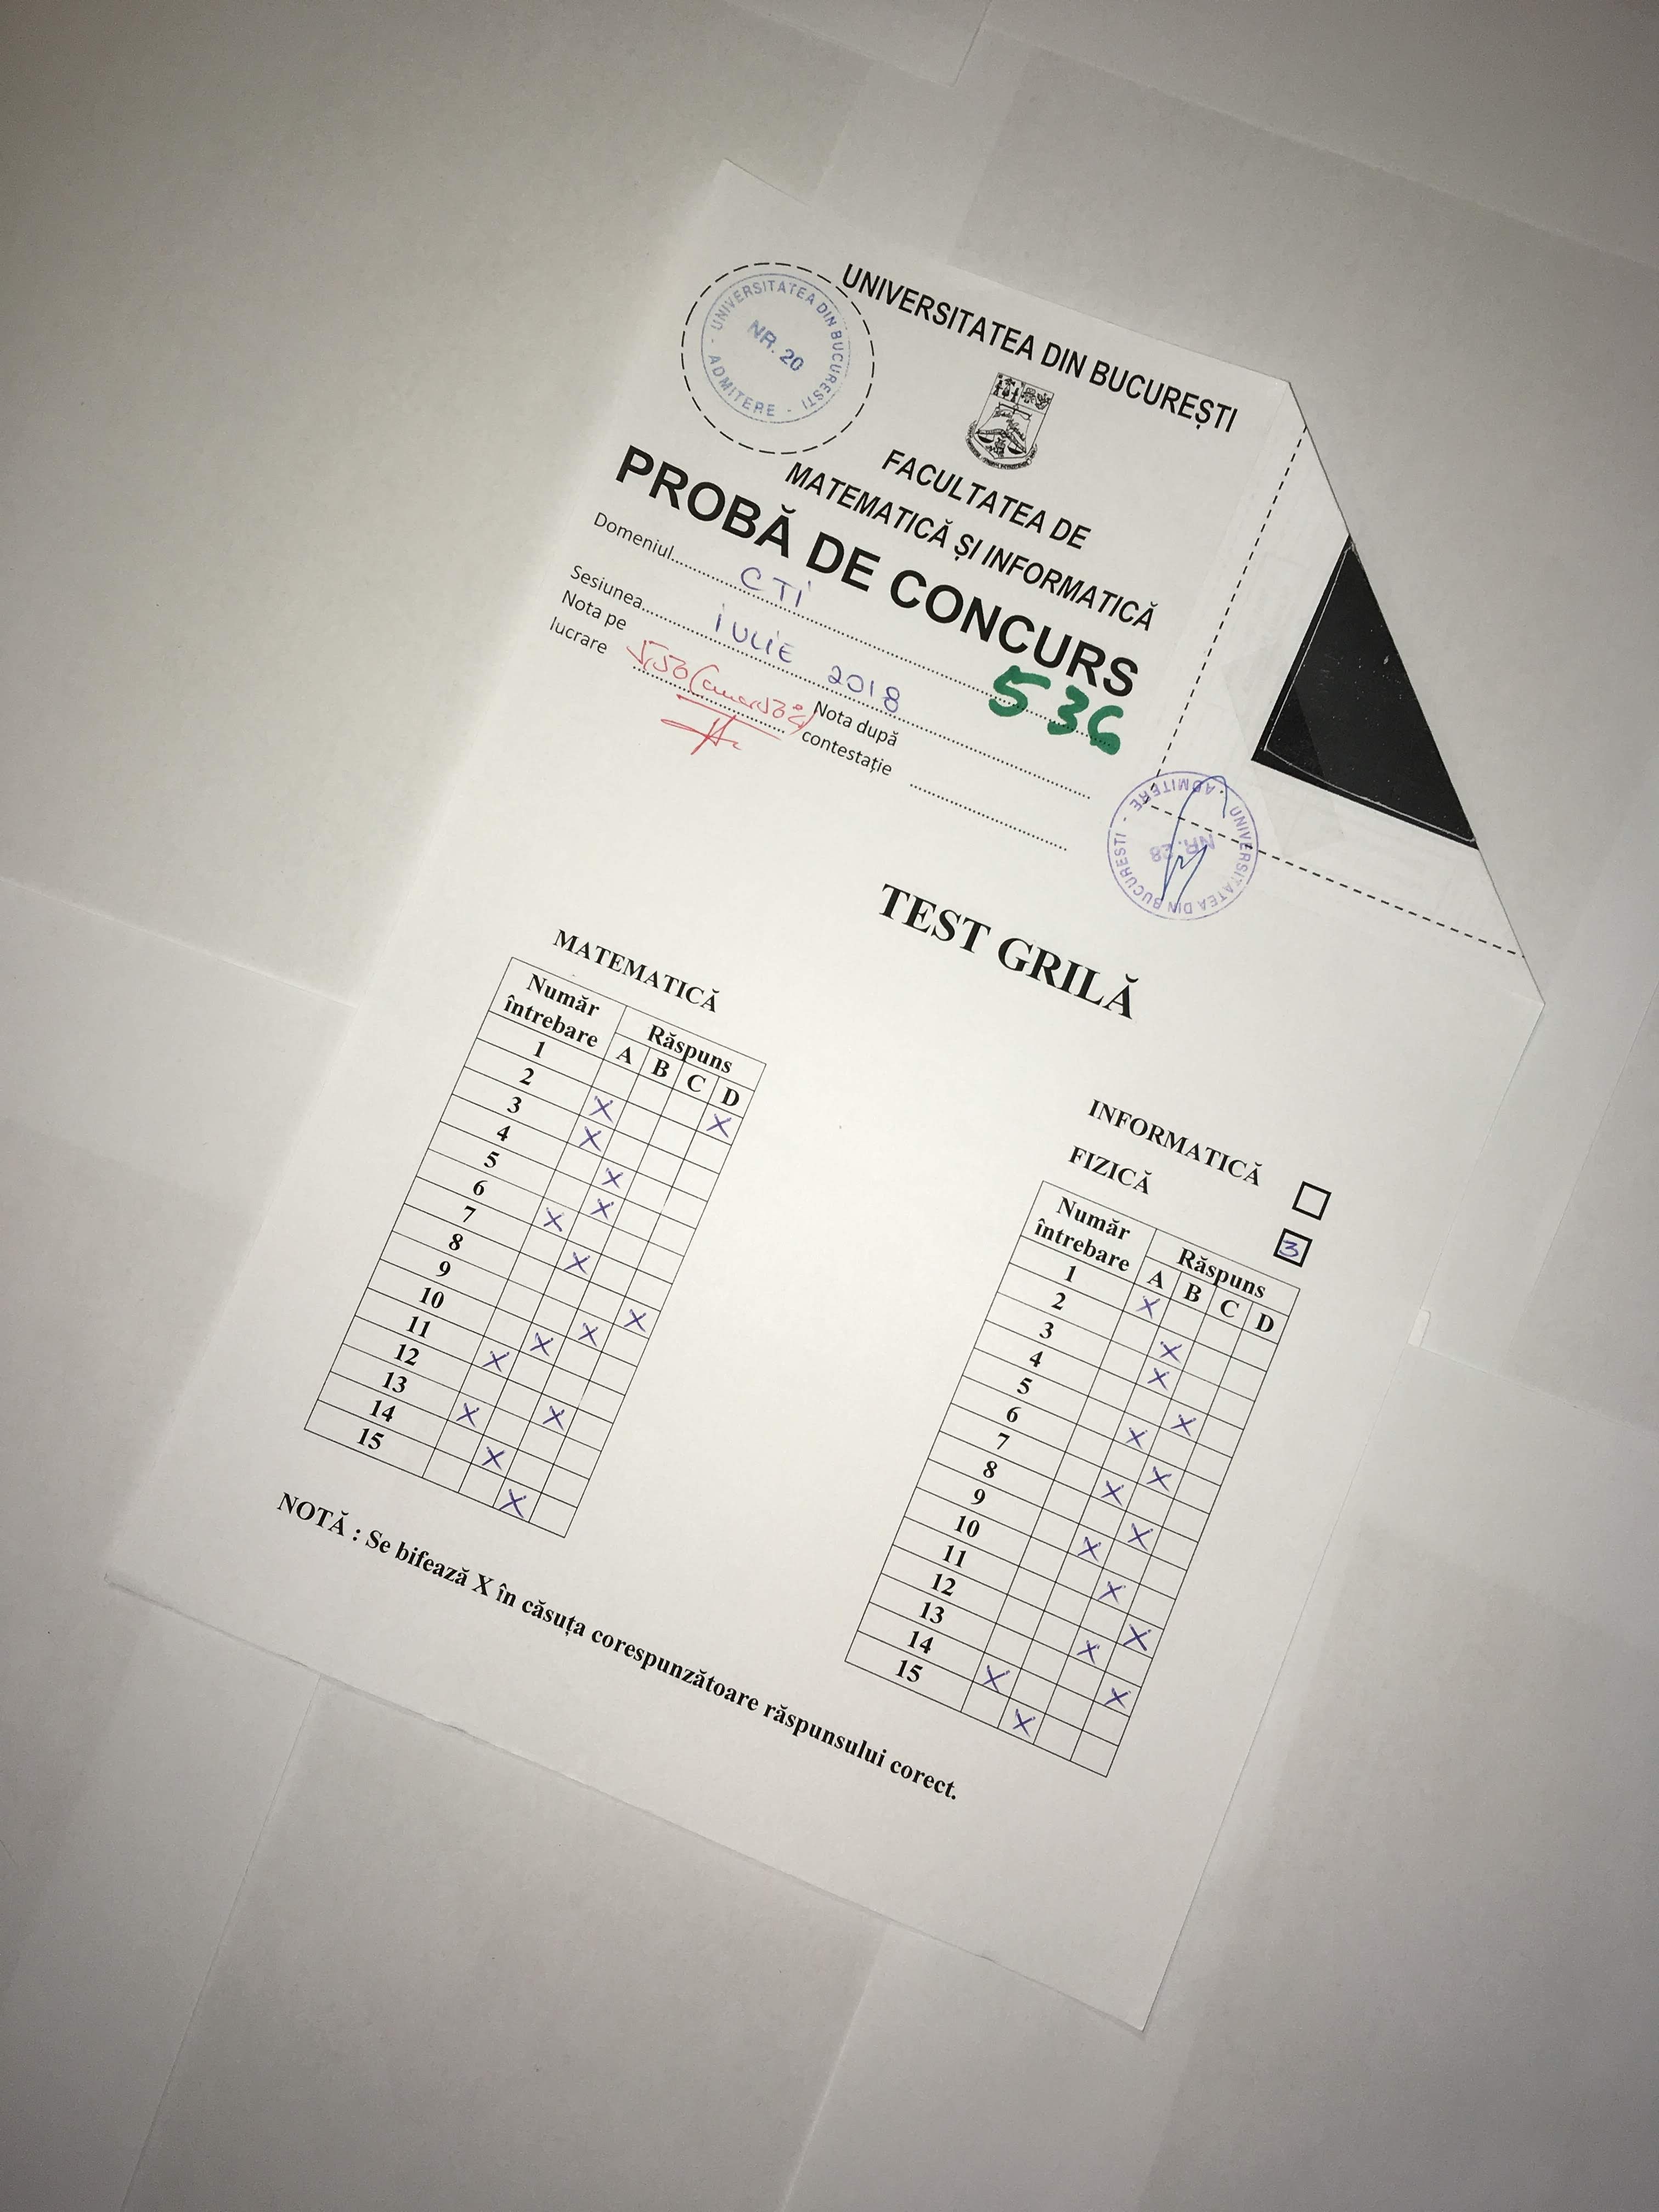 UNIVERSITATEA DIN BUCUREȘTI
UNIVERSITATEA DIN BUCURESTI - ADMITERE -
NR. 20
FACULTATEA DE
MATEMATICĂ ȘI INFORMATICĂ
PROBĂ DE CONCURS
Domeniul CTI
536
Sesiunea IULIE 2018
Nota pe
lucrare
Nota după
contestație
UNIVERSITATEA DIN BUCURESTI - ADMITERE -
NR. 28
TEST GRILĂ
MATEMATICĂ
Număr
întrebare
Răspuns
A B C D
1 X
2 X
3 X
4 X
5 X
6 X
7 X
8 X
9 X
10 X
11 X
12 X
13 X
14 X
15 X
INFORMATICĂ
FIZICĂ 3
Număr
întrebare
Răspuns
A B C D
1 X
2 X
3 X
4 X
5 X
6 X
7 X
8 X
9 X
10 X
11 X
12 X
13 X
14 X
15 X
NOTĂ : Se bifează X în căsuța corespunzătoare răspunsului corect.